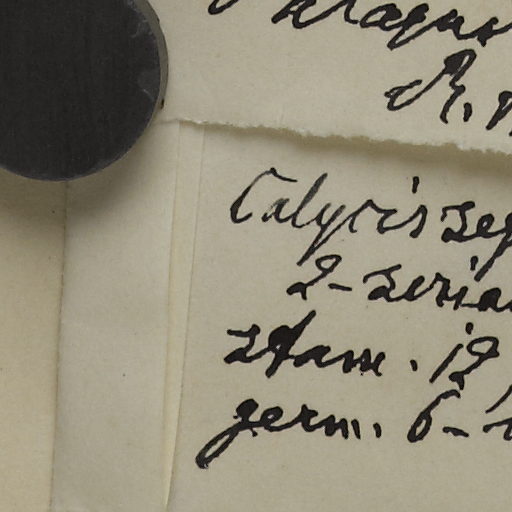 R.
Calycis sep
2-seria
stam. 12,
germ. 6-